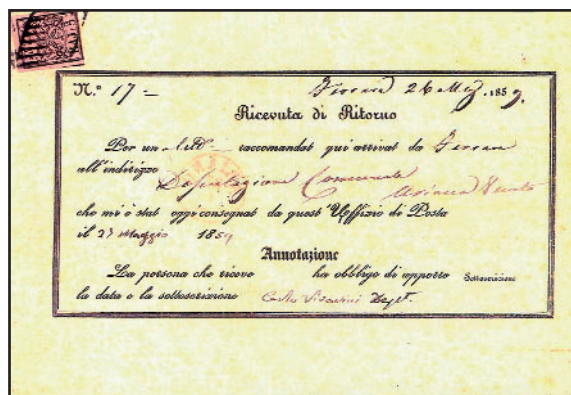 N.° 17 = Ferrara 26 Mag. 1859.
Ricevuta di Ritorno
Per un raccomandat qui arrivat da Ferrara
all'indirizzo
Deputazione Comunale
che mi è stat oggi consegnat da quest' Uffizio di Posta
il 27 Maggio 1859
Annotazione
La persona che riceve ha obbligo di apporre Sottoscrizione
la data e la sottoscrizione Carlo